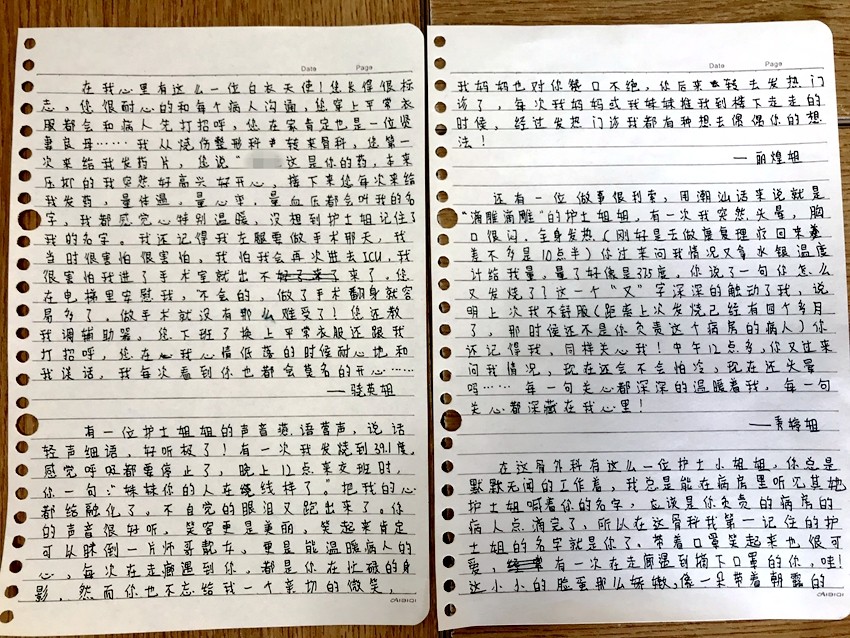 Date Page
在我心里有这么一位白衣天使!您长得很标
志，您很耐心的和每个病人沟通，您穿上平常衣
服都会和病人先打招呼，您在家肯定也是一位贤
妻良母……我从烧伤整形科转来骨科，您第一
次来给我发药片，您说“这是你的药，本来
压抑的我突然好高兴好开心，接下来您每次来给
我发药，量体温，量心率，量血压都会叫我的名
字，我都感觉心特别温暖，没想到护士姐记住了
我的名字。我还记得我左腿要做手术那天，我
当时很害怕很害怕，我怕我会再次进去ICU，我
很害怕我进了手术室就出不来了，您
在电梯里安慰我，不会的，做了手术翻身就容
易多了，做手术就没有那么难受了!您还教
我调辅助器。您下班了换上平常衣服还跟我
打招呼，您在我心情低落的时候耐心地和
我谈话，我每次看到你也都会莫名的开心……
—骁英姐
有一位护士姐姐的声音莺语莺声，说话
轻声细语，好听极了!有一次我发烧到39.1度，
感觉呼吸都要停止了，晚上12点来交班时，
你一句:“妹妹你的人在绕线样了。”把我的心
都给融化了，不自觉的眼泪又跑出来了。你
的声音很好听，笑容更是美丽，笑起来肯定
可以眯倒一片帅哥靓女，更是能温暖病人的
心，每次在走廊遇到你，都是你在忙碌的身
影，然而你也不忘给我一个亲切的微笑，
Date Page
我妈妈也对你赞口不绝，你后来转去发热门
诊了，每次我妈妈或我妹妹推我到楼下走走的
时候，经过发热门诊我都有种想去偶偶你的想
法!
—丽煌姐
还有一位做事很利索，用潮汕话来说就是
“海雕滴雕”的护士姐姐，有一次我突然头晕，胸
口很闷，全身发热(刚好是去做康复理疗回来差
差不多是10点半)你过来问我情况又拿水银温度
计给我量，量了好像是37.5度，你说了一句你怎么
又发烧了?这一个“又”字深深的触动了我，说
明上次我不舒服(距离上次发烧已经有四个多月
了，那时候还不是你负责这个病房的病人)你
还记得我，同样关心我!中午12点多，你又过来
问我情况，现在还会不会怕冷，现在还头晕
吗……每一句关心都深深的温暖着我，每一句
关心都深藏在我心里!
—青梅姐
在这骨外科有这么一位护士小姐姐，你总是
默默无闻的工作着，我总是能在病房里听见其她
护士姐喊着你的名字，应该是你负责的病房的
病人点滴完了，所以在这骨科我第一记住的护
士姐的名字就是你了，带着口罩笑起来也很可
爱，有一次在走廊遇到摘下口罩的你，哇!
这小小的脸蛋那么娇嫩，像一朵带着朝露的